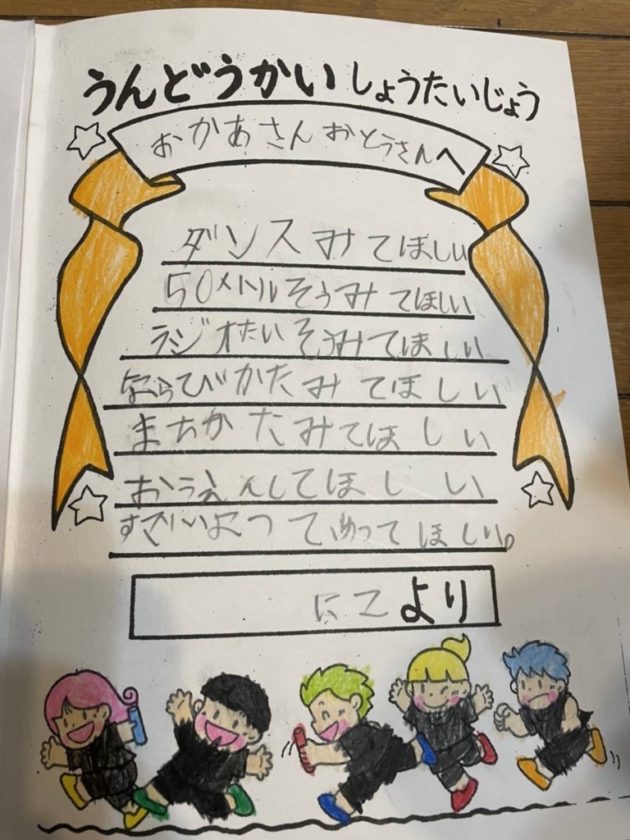 うんどうかいしょうたいじょう
おかあさんおとうさんへ
ダンスみてほしい
50メートルそうみてほしい
ラジオたいそうみてほしい
ならびかたみてほしい
まちかたみてほしい
おうえんしてほしい
すごいよってゆってほしい。
にこより